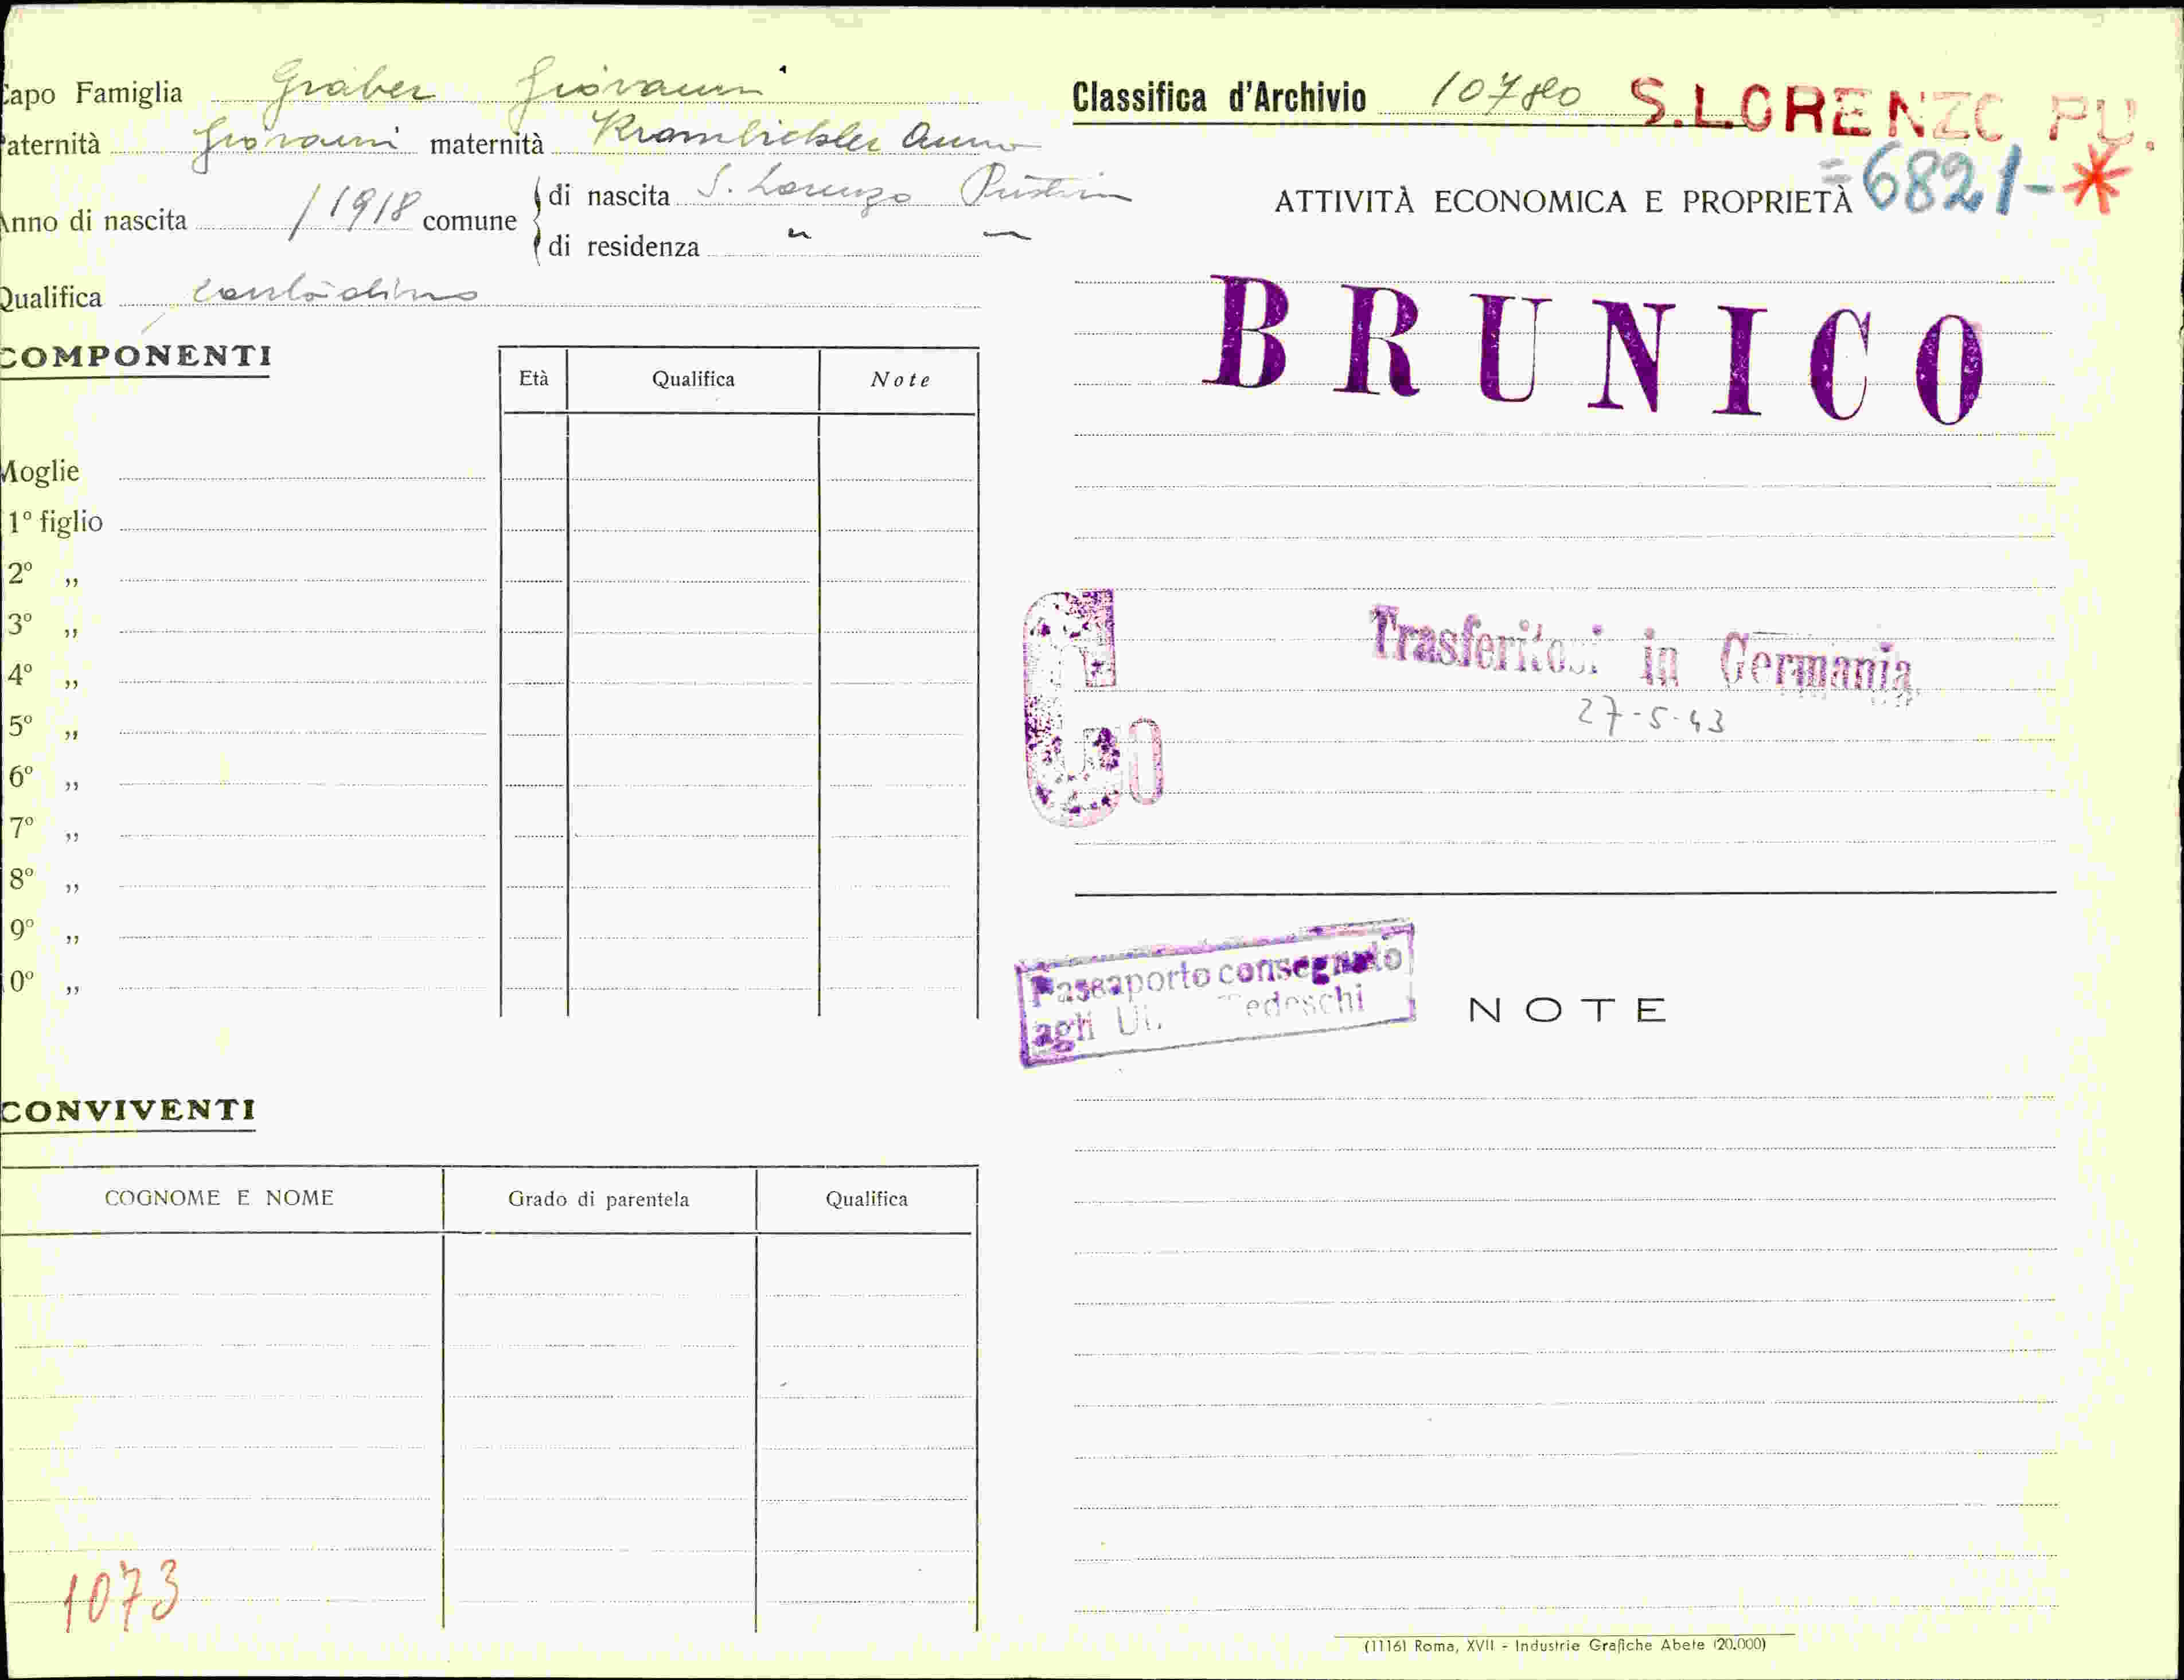 Capo Famiglia Graber Giovanni
Paternità Giovanni maternità Kramlichler Anna
Anno di nascita / 1918 comune di nascita S. Lorenzo
di residenza " "
Qualifica contadino
COMPONENTI
Età Qualifica Note
Moglie
1º figlio
2º „
3º „
4º „
5º „
6º „
7º „
8º „
9º „
0º „
CONVIVENTI
COGNOME E NOME Grado di parentela Qualifica
1073
Classifica d'Archivio S.LORENZO PU.
=6821-*
ATTIVITÀ ECONOMICA E PROPRIETÀ
BRUNICO
Trasferitosi in Germania
27-5-43
Passaporto consegnato
agli Tedeschi
NOTE
(1116) Roma, XVII - Industrie Grafiche Abete (20.000)